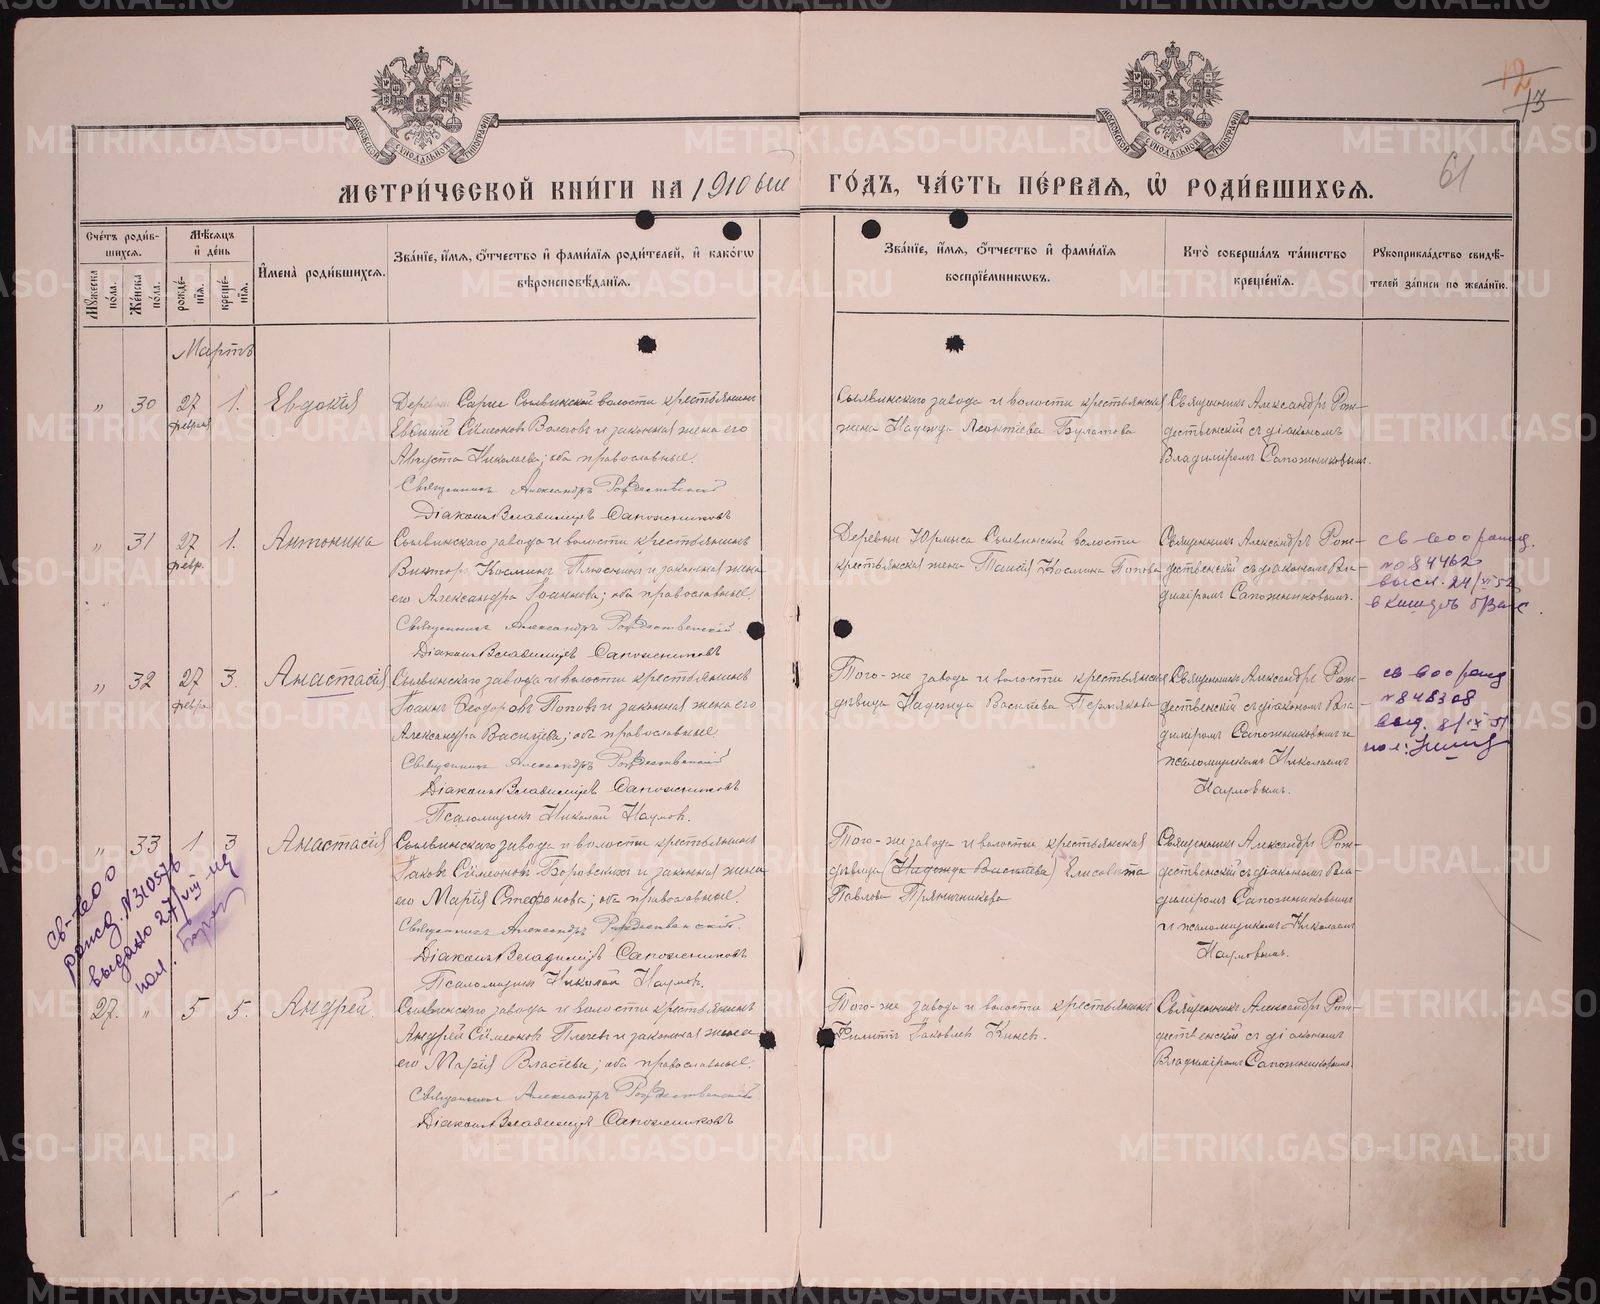 МЕТРИЧЕСКОЙ КНИГИ НА 1910 ый ГОДЪ, ЧАСТЬ ПЕРВАЯ, Ѡ РОДИВШИХСЯ.
12
13
61
МОСКОВСКОЙ СѴНОДАЛЬНОЙ ТИПОГРАФІИ
МОСКОВСКОЙ СѴНОДАЛЬНОЙ ТИПОГРАФІИ
Счетъ родив-
шихся.
Мужеска пола.
Женска пола.
Мѣсяцъ и день
рожде-
нія.
креще-
нія.
Имена родившихся.
Званіе, имя, отчество и фамилія родителей, и какогѡ
вѣроисповѣданія.
Званіе, имя, отчество и фамилія
воспріемникѡвъ.
Кто совершалъ таинство
крещенія.
Рукоприкладство свидѣ-
телей записи по желанію.
Мартъ
" 30 27 февраля 1. Евдокія
Деревни Сарги Сылвинской волости крестьянинъ
Сѷмеоновъ и законная жена его
Августа Николаева; оба православные.
Священникъ Александръ Рождественскій
Діаконъ Владимиръ Сапожниковъ
Сылвинскаго завода и волости крестьянская
жена Надежда Леонтіева Булатова
Священникъ Александръ Рож-
дественскій съ діакономъ
Владиміромъ Сапожниковымъ.
" 31 27 февр. 1. Антонина
Сылвинскаго завода и волости крестьянинъ
Викторъ Косминъ Плюснинъ и законная жена
его Александра Іоаннова; оба православные.
Священникъ Александръ Рождественскій.
Діаконъ Владимиръ Сапожниковъ
Деревни Юрмыса Сылвинской волости
крестьянская жена Таисія Космина Попова
Священникъ Александръ Рож-
дественскій съ діакономъ Вла-
диміромъ Сапожниковымъ.
св-во о рожд.
№ 084462
высл. 24/XI 52
" 32 27 февр. 3. Анастасія
Сылвинскаго завода и волости крестьянинъ
Іоаннъ Ѳеодоровъ Поповъ и законная жена его
Александра Васильева; оба православные.
Священникъ Александръ Рождественскій
Діаконъ Владимиръ Сапожниковъ
Псаломщикъ Николай Наумовъ.
Того-же завода и волости крестьянская
дѣвица Надежда Васильева Пермякова
Священникъ Александръ Рож-
дественскій съ діакономъ Вла-
диміромъ Сапожниковымъ и
псаломщикомъ Николаемъ
Наумовымъ.
св-во о рожд
№ 848308
выд. 8/IX 51
" 33 1 3 Анастасія
Сылвинскаго завода и волости крестьянинъ
Іаковъ Сѷмеоновъ Боровскихъ и законная жена
его Марія Стефанова; оба православные.
Священникъ Александръ Рождественскій.
Діаконъ Владимиръ Сапожниковъ
Псаломщикъ Николай Наумовъ.
Того-же завода и волости крестьянская
дѣвица (Надежда Васильева) Елисавета
Павлова Пряничникова
Священникъ Александръ Рож-
дественскій съ діакономъ Вла-
диміромъ Сапожниковымъ
и псаломщикомъ Николаемъ
Наумовымъ.
св-во о
рожд. № 310576
выдано 27/VIII
пол.
27. " 5 5. Андрей.
Сылвинскаго завода и волости крестьянинъ
Андрей Сѷмеоновъ и законная жена
его Марія; оба православные.
Священникъ Александръ Рождественскій.
Діаконъ Владимиръ Сапожниковъ
Того-же завода и волости крестьянинъ
Филиппъ Іаковлевъ Кинёвъ.
Священникъ Александръ Рож-
дественскій съ діакономъ
Владиміромъ Сапожниковымъ.
METRIKI.GASO-URAL.RU